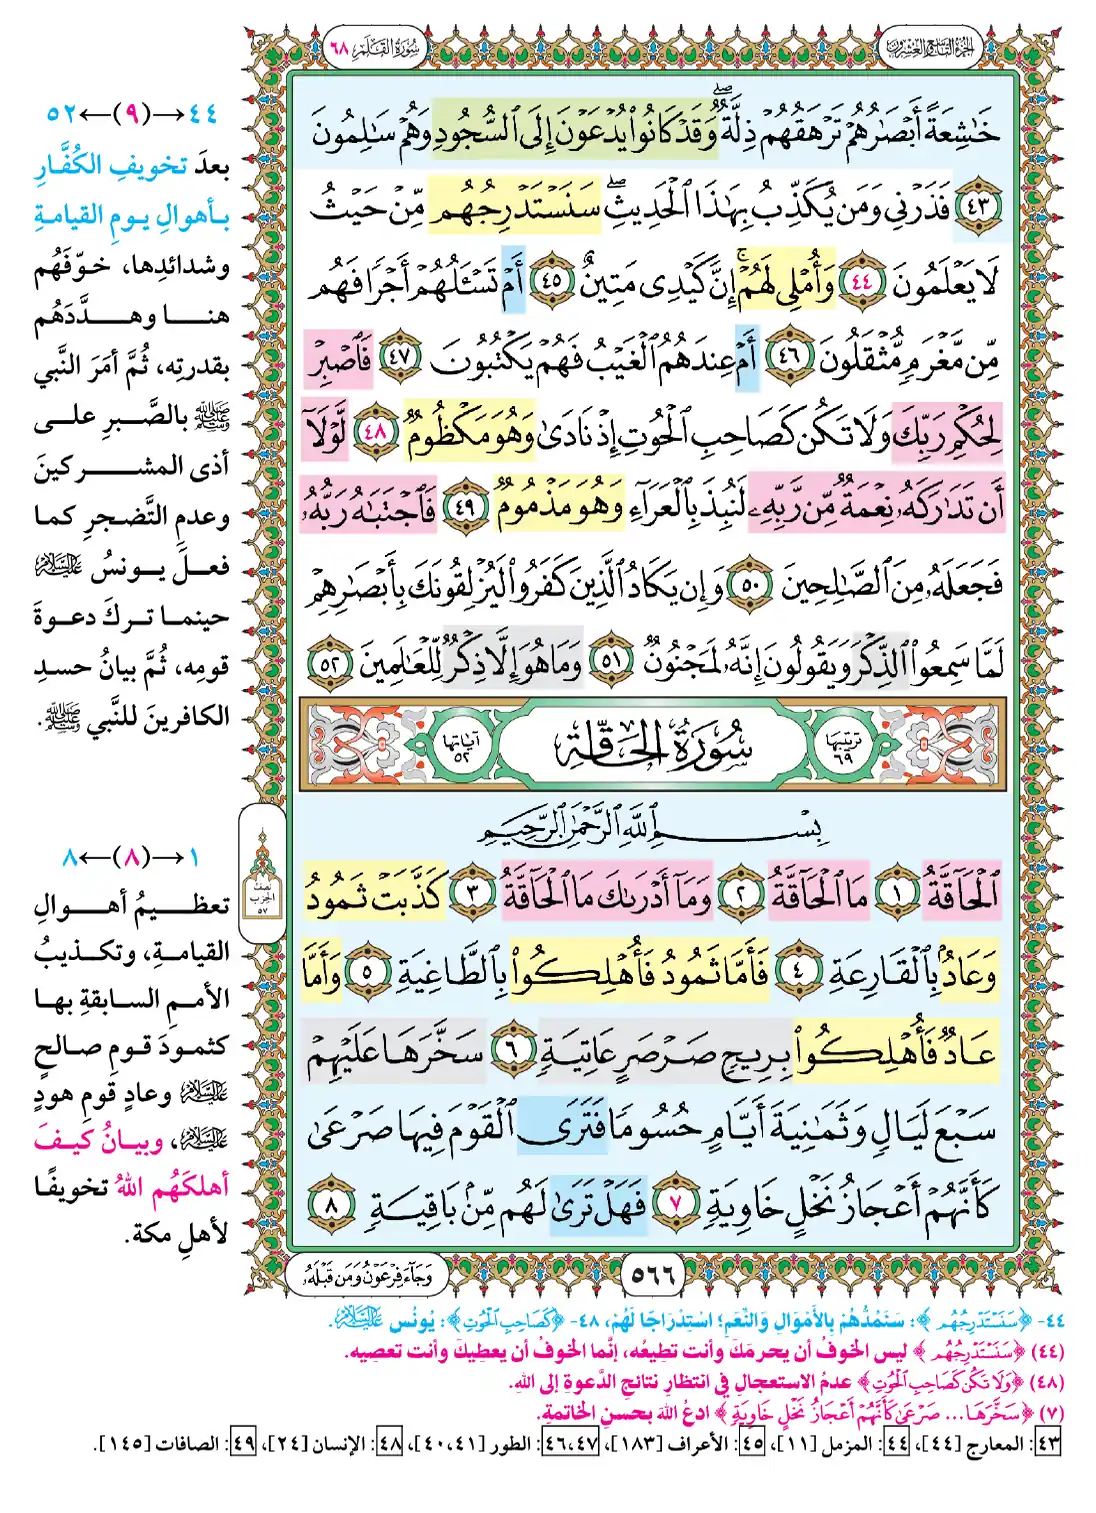 الجزء التاسع والعشرون
سورة القلم ٦٨
خَٰشِعَةً أَبْصَٰرُهُمْ تَرْهَقُهُمْ ذِلَّةٌ ۖ وَقَدْ كَانُوا۟ يُدْعَوْنَ إِلَى ٱلسُّجُودِ وَهُمْ سَٰلِمُونَ
٤٣ فَذَرْنِى وَمَن يُكَذِّبُ بِهَٰذَا ٱلْحَدِيثِ ۖ سَنَسْتَدْرِجُهُم مِّنْ حَيْثُ
لَا يَعْلَمُونَ ٤٤ وَأُمْلِى لَهُمْ ۚ إِنَّ كَيْدِى مَتِينٌ ٤٥ أَمْ تَسْـَٔلُهُمْ أَجْرًا فَهُم
مِّن مَّغْرَمٍ مُّثْقَلُونَ ٤٦ أَمْ عِندَهُمُ ٱلْغَيْبُ فَهُمْ يَكْتُبُونَ ٤٧ فَٱصْبِرْ
لِحُكْمِ رَبِّكَ وَلَا تَكُن كَصَاحِبِ ٱلْحُوتِ إِذْ نَادَىٰ وَهُوَ مَكْظُومٌ ٤٨ لَّوْلَآ
أَن تَدَٰرَكَهُۥ نِعْمَةٌ مِّن رَّبِّهِۦ لَنُبِذَ بِٱلْعَرَآءِ وَهُوَ مَذْمُومٌ ٤٩ فَٱجْتَبَٰهُ رَبُّهُۥ
فَجَعَلَهُۥ مِنَ ٱلصَّٰلِحِينَ ٥٠ وَإِن يَكَادُ ٱلَّذِينَ كَفَرُوا۟ لَيُزْلِقُونَكَ بِأَبْصَٰرِهِمْ
لَمَّا سَمِعُوا۟ ٱلذِّكْرَ وَيَقُولُونَ إِنَّهُۥ لَمَجْنُونٌ ٥١ وَمَا هُوَ إِلَّا ذِكْرٌ لِّلْعَٰلَمِينَ ٥٢
ترتيبها ٦٩ سُورَةُ الحَاقَّةِ آياتها ٥٢
بِسْمِ ٱللَّهِ ٱلرَّحْمَٰنِ ٱلرَّحِيمِ
ٱلْحَآقَّةُ ١ مَا ٱلْحَآقَّةُ ٢ وَمَآ أَدْرَىٰكَ مَا ٱلْحَآقَّةُ ٣ كَذَّبَتْ ثَمُودُ
وَعَادٌۢ بِٱلْقَارِعَةِ ٤ فَأَمَّا ثَمُودُ فَأُهْلِكُوا۟ بِٱلطَّاغِيَةِ ٥ وَأَمَّا
عَادٌ فَأُهْلِكُوا۟ بِرِيحٍ صَرْصَرٍ عَاتِيَةٍ ٦ سَخَّرَهَا عَلَيْهِمْ
سَبْعَ لَيَالٍ وَثَمَٰنِيَةَ أَيَّامٍ حُسُومًا فَتَرَى ٱلْقَوْمَ فِيهَا صَرْعَىٰ
كَأَنَّهُمْ أَعْجَازُ نَخْلٍ خَاوِيَةٍ ٧ فَهَلْ تَرَىٰ لَهُم مِّنۢ بَاقِيَةٍ ٨
٥٦٦
وَجَآءَ فِرْعَوْنُ وَمَن قَبْلَهُۥ
٤٤→(٩)←٥٢
بعدَ تخويفِ الكُفَّارِ
بأهوالِ يومِ القيامةِ
وشدائدِها، خوَّفَهُم
هنا وهدَّدَهُم
بقدرتِه، ثُمَّ أمَرَ النَّبي
ﷺ بالصَّبرِ على
أذى المشركينَ
وعدمِ التَّضجرِ كما
فعلَ يونسُ عليه السلام
حينما تركَ دعوةَ
قومِه، ثُمَّ بيانُ حسدِ
الكافرينَ للنَّبي ﷺ.
نصف الحزب ٥٧
١→(٨)←٨
تعظيمُ أهوالِ
القيامةِ، وتكذيبُ
الأممِ السابقةِ بها
كثمودَ قومِ صالحٍ
عليه السلام وعادٍ قومِ هودٍ
عليه السلام، وبيانُ كيفَ
أهلكَهُم اللهُ تخويفًا
لأهلِ مكة.
٤٤- ﴿سَنَسْتَدْرِجُهُم﴾: سَنَمُدُّهُمْ بِالأَمْوَالِ وَالنِّعَمِ؛ اسْتِدْرَاجًا لَهُمْ، ٤٨- ﴿كَصَاحِبِ ٱلْحُوتِ﴾: يُونُس عليه السلام.
(٤٤) ﴿سَنَسْتَدْرِجُهُم﴾ ليس الخوفُ أن يحرمَكَ وأنت تطيعُه، إنَّما الخوفُ أن يعطيكَ وأنت تعصيه.
(٤٨) ﴿وَلَا تَكُن كَصَاحِبِ ٱلْحُوتِ﴾ عدمُ الاستعجالِ في انتظارِ نتائجِ الدَّعوةِ إلى الله.
(٧) ﴿سَخَّرَهَا... صَرْعَىٰ كَأَنَّهُمْ أَعْجَازُ نَخْلٍ خَاوِيَةٍ﴾ ادعُ اللهَ بحسنِ الخاتمةِ.
٤٣: المعارج [٤٤]، ٤٤: المزمل [١١]، ٤٥: الأعراف [١٨٣]، ٤٦،٤٧: الطور [٤٠،٤١]، ٤٨: الإنسان [٢٤]، ٤٩: الصافات [١٤٥].